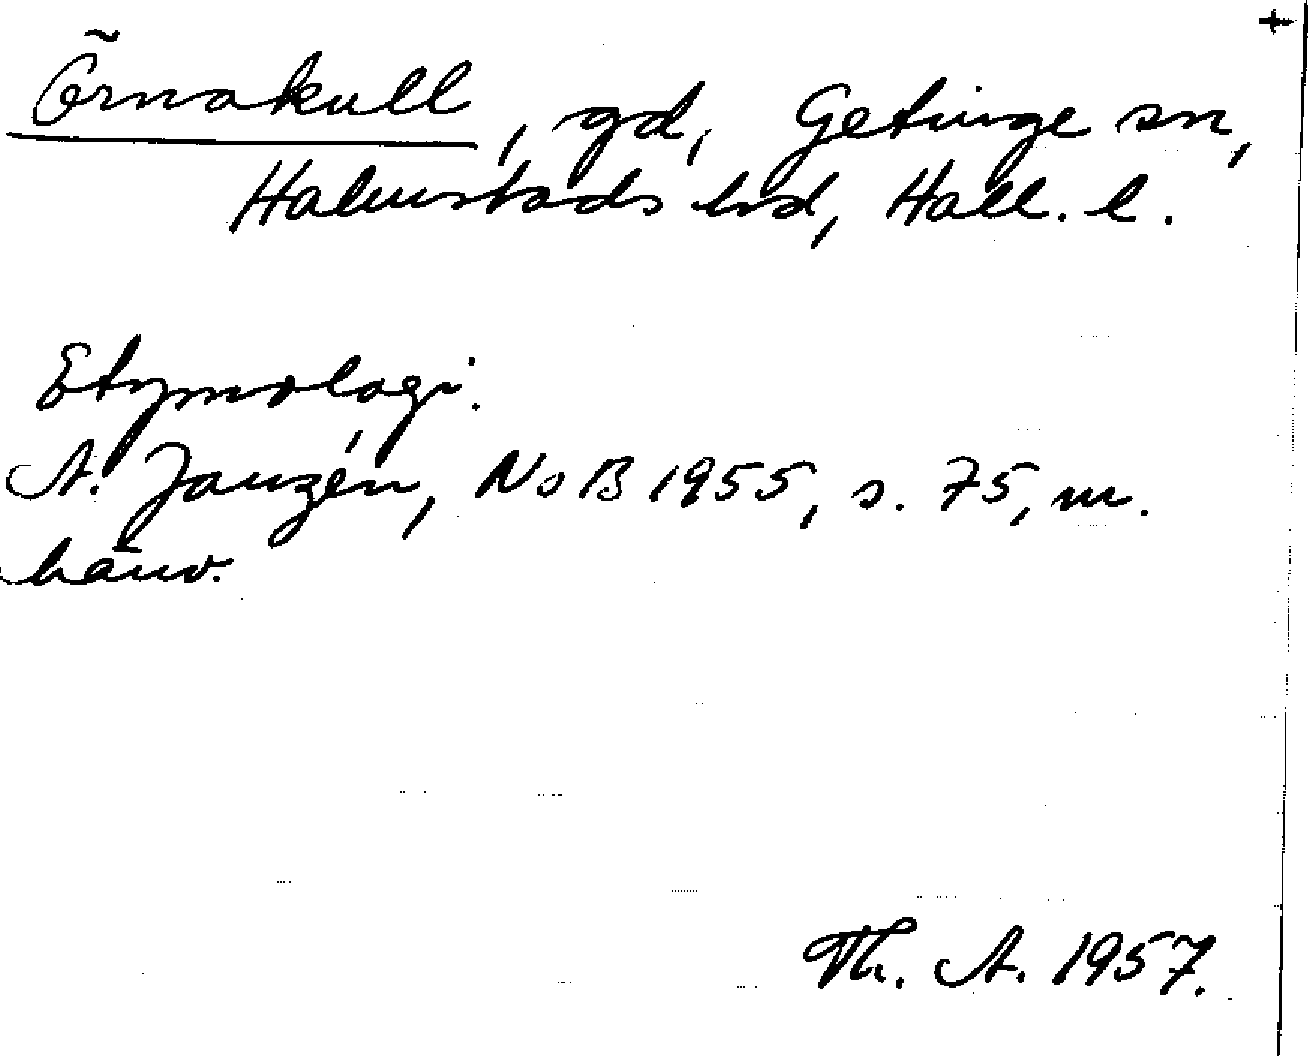 +
Örnakull, gd, Getinge sn,
Halmstads hrd, Hall. l.
Etymologi.
A. Janzén, NoB 1955, s. 75, m.
hänv.
Th. A. 1957.